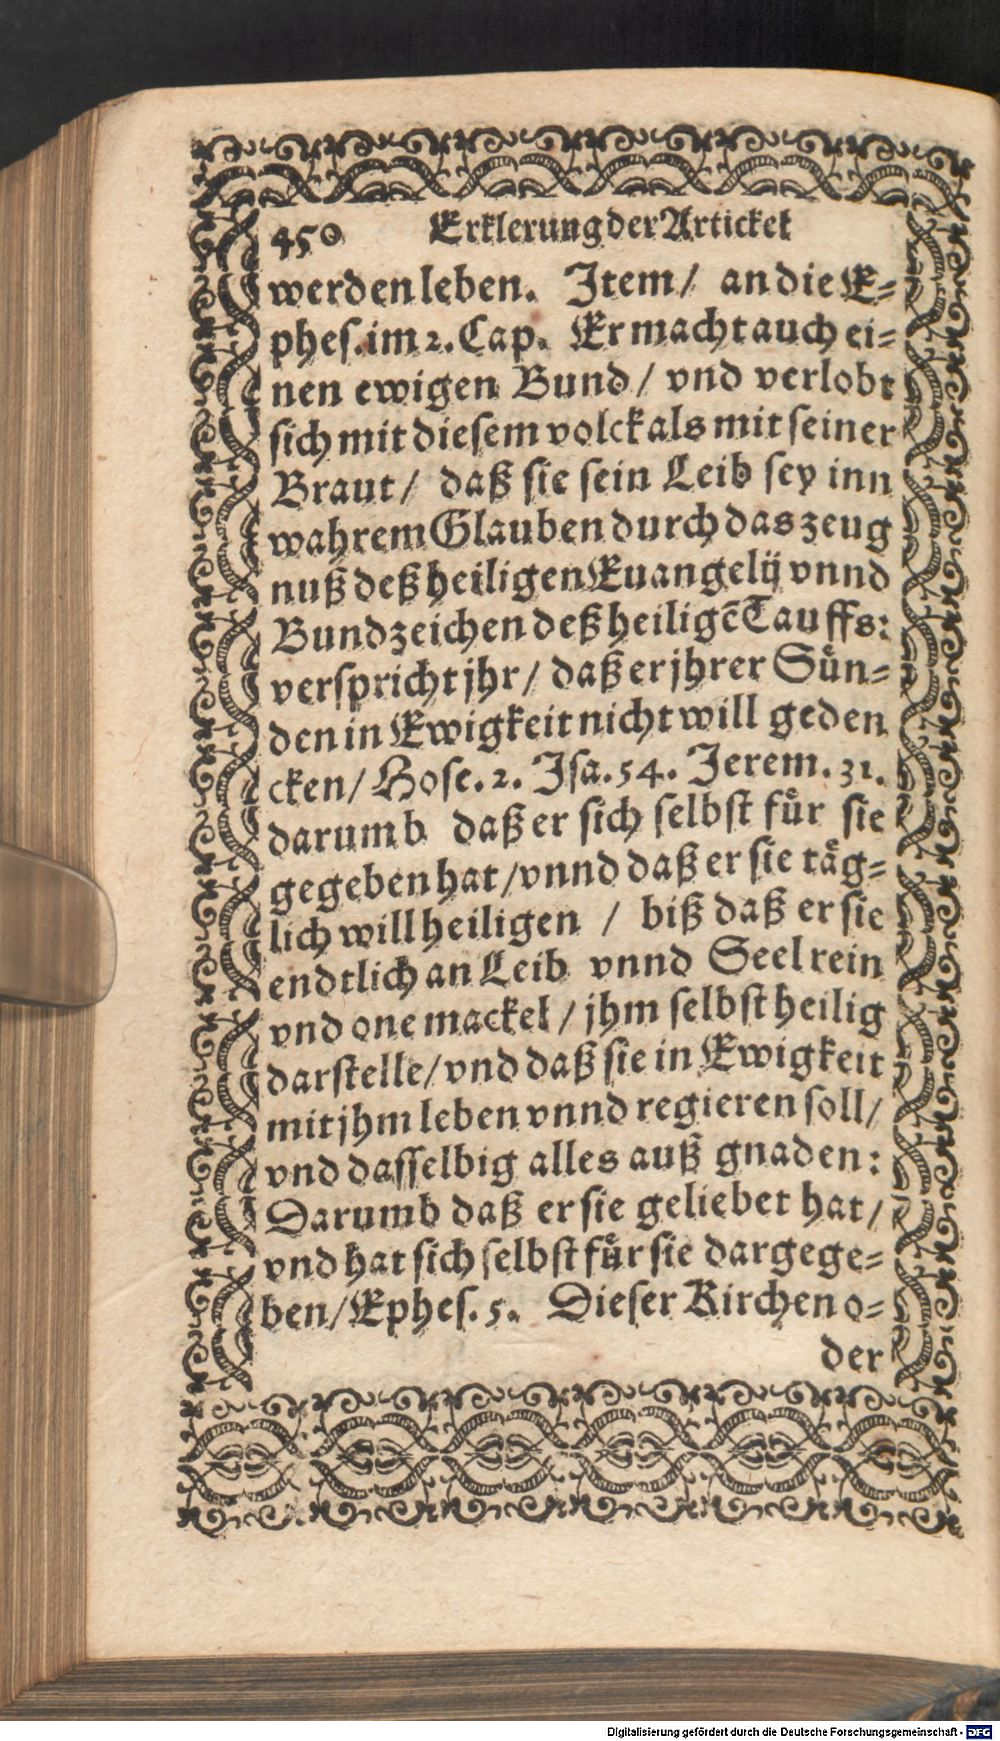 450 Erklerung der Artickel
werden leben. Item / an die E-
phes. im 2. Cap. Er macht auch ei-
nen ewigen Bund / vnd verlobt
sich mit diesem volck als mit seiner
Braut / daß sie sein Leib sey inn
wahrem Glauben durch das zeug
nuß deß heiligen Euangelij vnnd
Bundzeichen deß heiligẽ Tauffs:
verspricht jhr / daß er jhrer Sünͤ-
den in Ewigkeit nicht will geden
cken / Hose. 2. Isa. 54. Jerem. 31.
darumb daß er sich selbst fuͤr sie
gegeben hat / vnnd daß er sie taͤg-
lich will heiligen / biß daß er sie
endtlich an Leib vnnd Seel rein
vnd one mackel / jhm selbst heilig
darstelle / vnd daß sie in Ewigkeit
mit jhm leben vnnd regieren soll /
vnd dasselbig alles auß gnaden:
Darumb daß er sie geliebet hat /
vnd hat sich selbst fuͤr sie dargege-
ben / Ephes. 5. Dieser Kirchen o-
der
Digitalisierung gefördert durch die Deutsche Forschungsgemeinschaft - DFG